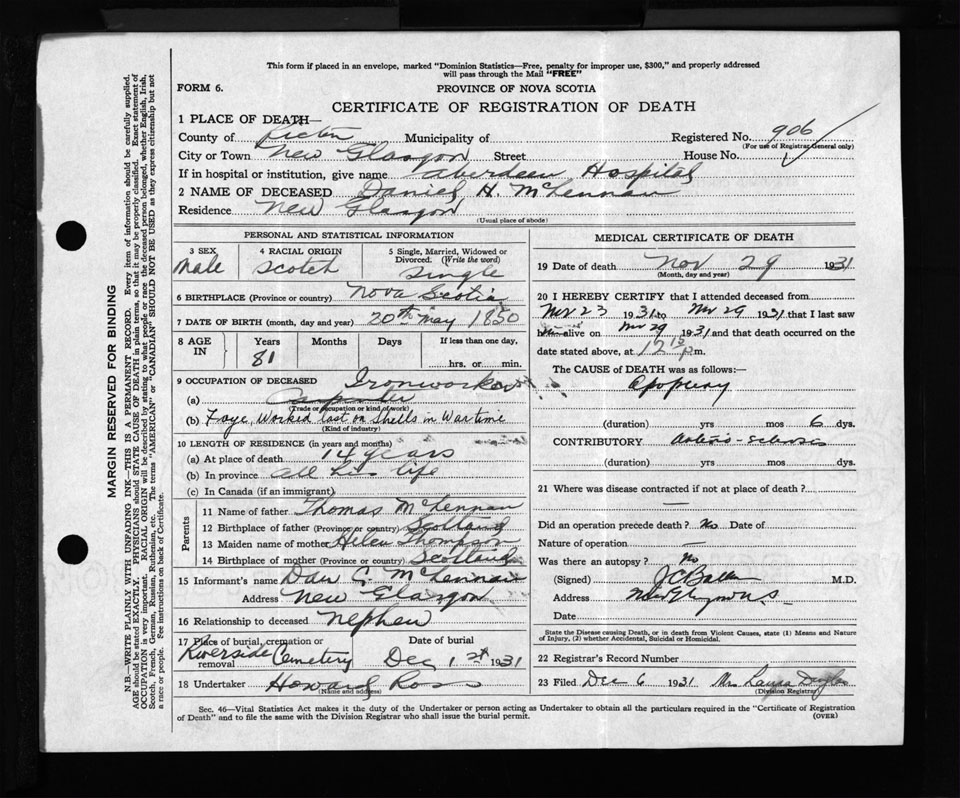 This form if placed in an envelope, marked "Dominion Statistics—Free, penalty for improper use, $300," and properly addressed
will pass through the Mail "FREE"
FORM 6.
PROVINCE OF NOVA SCOTIA
CERTIFICATE OF REGISTRATION OF DEATH
1 PLACE OF DEATH—
County of Pictou Municipality of Registered No. 906
(For use of Registrar General only)
City or Town New Glasgow Street House No.
If in hospital or institution, give name Aberdeen Hospital
2 NAME OF DECEASED Daniel H. McLennan
Residence New Glasgow
(Usual place of abode)
PERSONAL AND STATISTICAL INFORMATION
3 SEX Male
4 RACIAL ORIGIN Scotch
5 Single, Married, Widowed or Divorced. (Write the word) Single
6 BIRTHPLACE (Province or country) Nova Scotia
7 DATE OF BIRTH (month, day and year) 20th May 1850
8 AGE IN Years 81 Months Days If less than one day, hrs. or min.
9 OCCUPATION OF DECEASED Ironworker
(a) Carpenter
(Trade or occupation or kind of work)
(b) Worked last on Shells in Wartime
(Kind of industry)
10 LENGTH OF RESIDENCE (in years and months)
(a) At place of death 14 years
(b) In province all his life
(c) In Canada (if an immigrant)
Parents
11 Name of father Thomas McLennan
12 Birthplace of father (Province or country) Scotland
13 Maiden name of mother Helen Thompson
14 Birthplace of mother (Province or country) Scotland
15 Informant's name Dan G. McLennan
Address New Glasgow
16 Relationship to deceased Nephew
17 Place of burial, cremation or removal Riverside Cemetery Date of burial Dec 1st 1931
18 Undertaker Howard Ross
(Name and address)
MEDICAL CERTIFICATE OF DEATH
19 Date of death Nov 29 1931
(Month, day and year)
20 I HEREBY CERTIFY that I attended deceased from
Nov 23 1931 to Nov 29 1931 that I last saw
him alive on Nov 29 1931 and that death occurred on the
date stated above, at 12 15 p m.
The CAUSE OF DEATH was as follows:—
Apoplexy
(duration) yrs mos 6 dys.
CONTRIBUTORY Arterio-sclerosis
(duration) yrs mos dys.
21 Where was disease contracted if not at place of death?
—
Did an operation precede death? No Date of
Nature of operation —
Was there an autopsy? No
(Signed) M.D.
Address New Glasgow N.S.
Date
State the Disease causing Death, or in death from Violent Causes, state (1) Means and Nature
of Injury, (2) whether Accidental, Suicidal or Homicidal.
22 Registrar's Record Number
23 Filed Dec 6 1931 Mrs Laura Douglas
(Division Registrar)
Sec. 46—Vital Statistics Act makes it the duty of the Undertaker or person acting as Undertaker to obtain all the particulars required in the "Certificate of Registration
of Death" and to file the same with the Division Registrar who shall issue the burial permit.
(OVER)
MARGIN RESERVED FOR BINDING
N.B.—WRITE PLAINLY WITH UNFADING INK—THIS IS A PERMANENT RECORD. Every item of information should be carefully supplied.
AGE should be stated EXACTLY. PHYSICIANS should STATE CAUSE OF DEATH in plain terms, so that it may be properly classified. Exact statement of
OCCUPATION is very important. RACIAL ORIGIN will be described by stating to what people or race the deceased person belonged, whether English, Irish,
Scotch, French, German, Russian, Ruthenian, etc. The terms "AMERICAN" or "CANADIAN" SHOULD NOT BE USED as they express citizenship but not
a race or people. See instructions on back of Certificate.